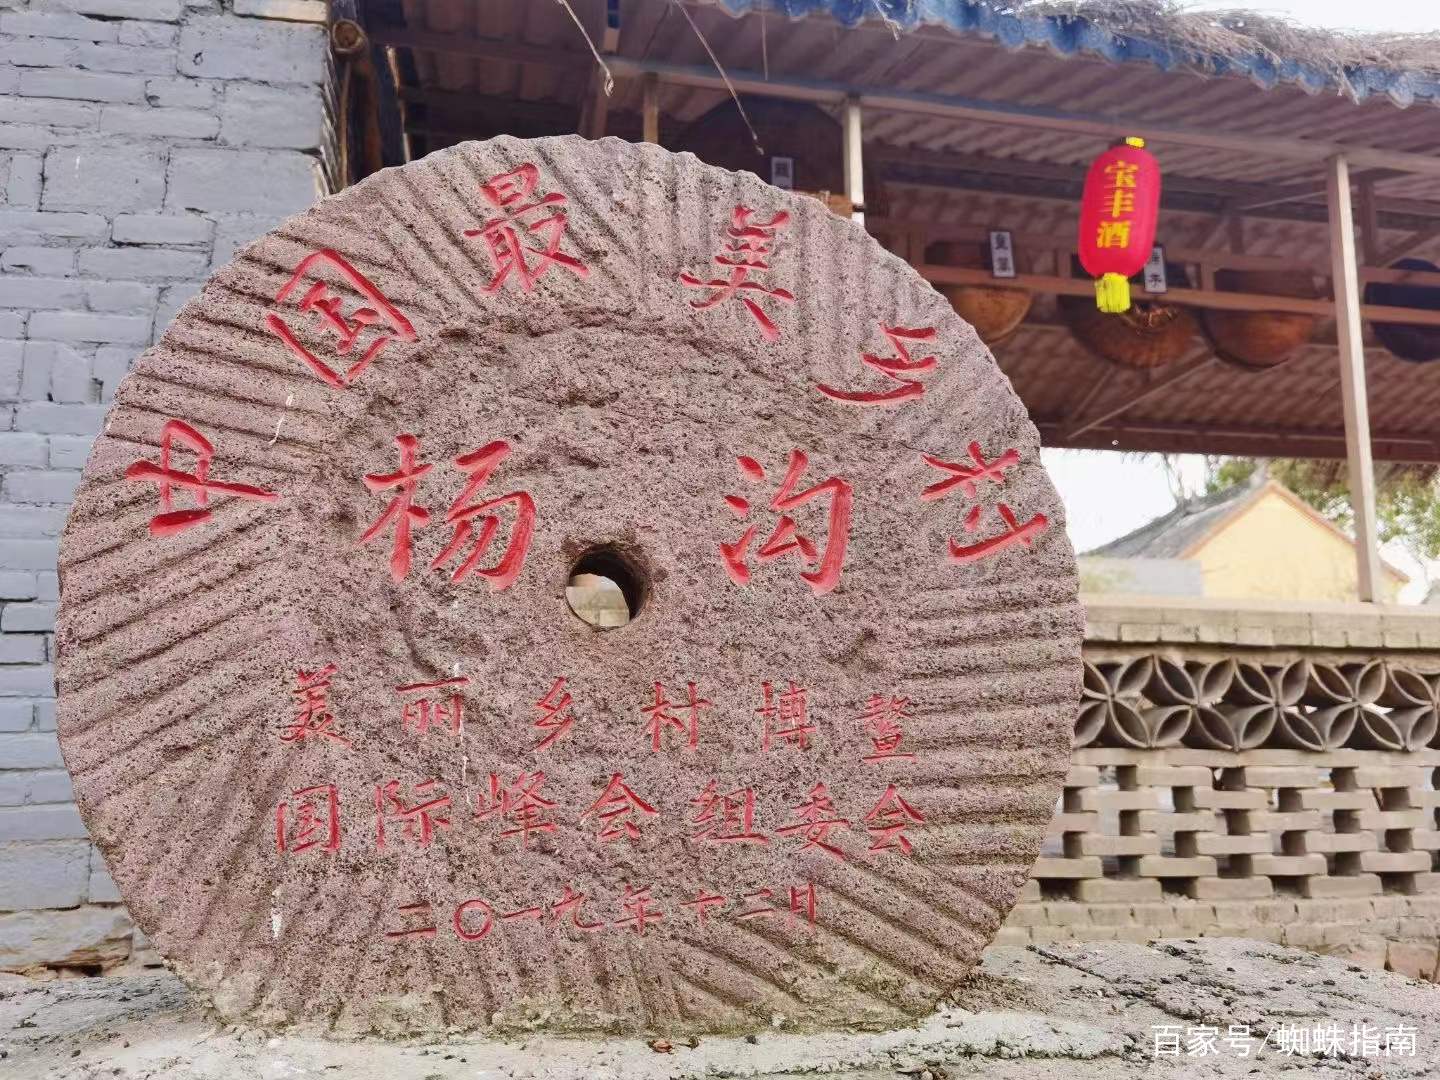 中国最美乡村
杨沟
美丽乡村博鳌
国际峰会组委会
二〇一九年十二月
宝丰酒
百家号/蜘蛛指南